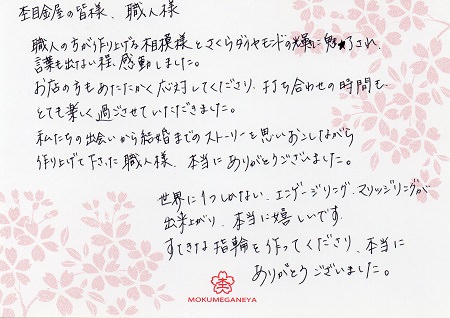 杢目金屋の皆様、職人様
職人の方が作り上げる木目模様とさくらダイヤモンドの輝きに魅了され、
言葉も出ない程、感動しました。
お店の方もあたたかく応対してくださり、打ち合わせの時間も
とても楽しく過ごさせていただきました。
私たちの出会いから結婚までのストーリーを思いおこしながら
作り上げて下さった職人様、本当にありがとうございました。
世界に1つしかない、エンゲージリング、マリッジリングが
出来上がり、本当に嬉しいです。
すてきな指輪を作ってくださり、本当に
ありがとうございました。
MOKUMEGANEYA